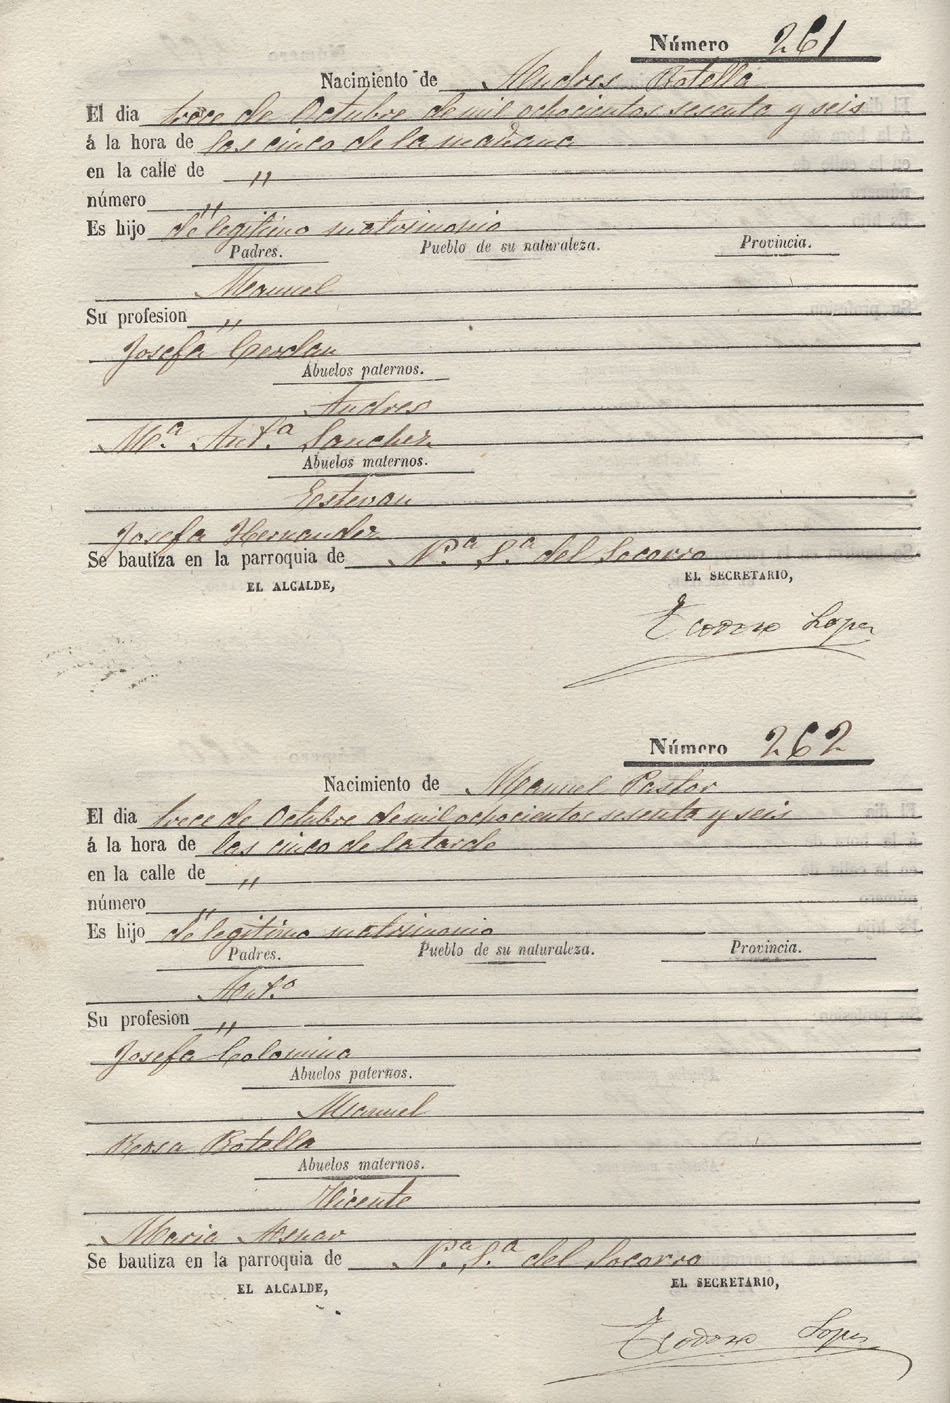 Número 261
Nacimiento de Andres Botella
El dia trece de Octubre de mil ochocientos sesenta y seis
á la hora de las cinco de la mañana
en la calle de "
número "
Es hijo de legitimo matrimonio
Padres. Pueblo de su naturaleza. Provincia.
Manuel
Su profesion "
Josefa Cerdan
Abuelos paternos.
Andres
Mª Antª Sanchez
Abuelos maternos.
Estevan
Josefa Hernandez
Se bautiza en la parroquia de Nª Sª del Socorro
EL ALCALDE, EL SECRETARIO,
Teodoro Lopez
Número 262
Nacimiento de Manuel Pastor
El dia trece de Octubre de mil ochocientos sesenta y seis
á la hora de las cinco de la tarde
en la calle de "
número "
Es hijo de legitimo matrimonio
Padres. Pueblo de su naturaleza. Provincia.
Antº
Su profesion "
Josefa Colomina
Abuelos paternos.
Manuel
Rosa Botella
Abuelos maternos.
Vicente
Maria Asnar
Se bautiza en la parroquia de Nª Sª del Socorro
EL ALCALDE, EL SECRETARIO,
Teodoro Lopez